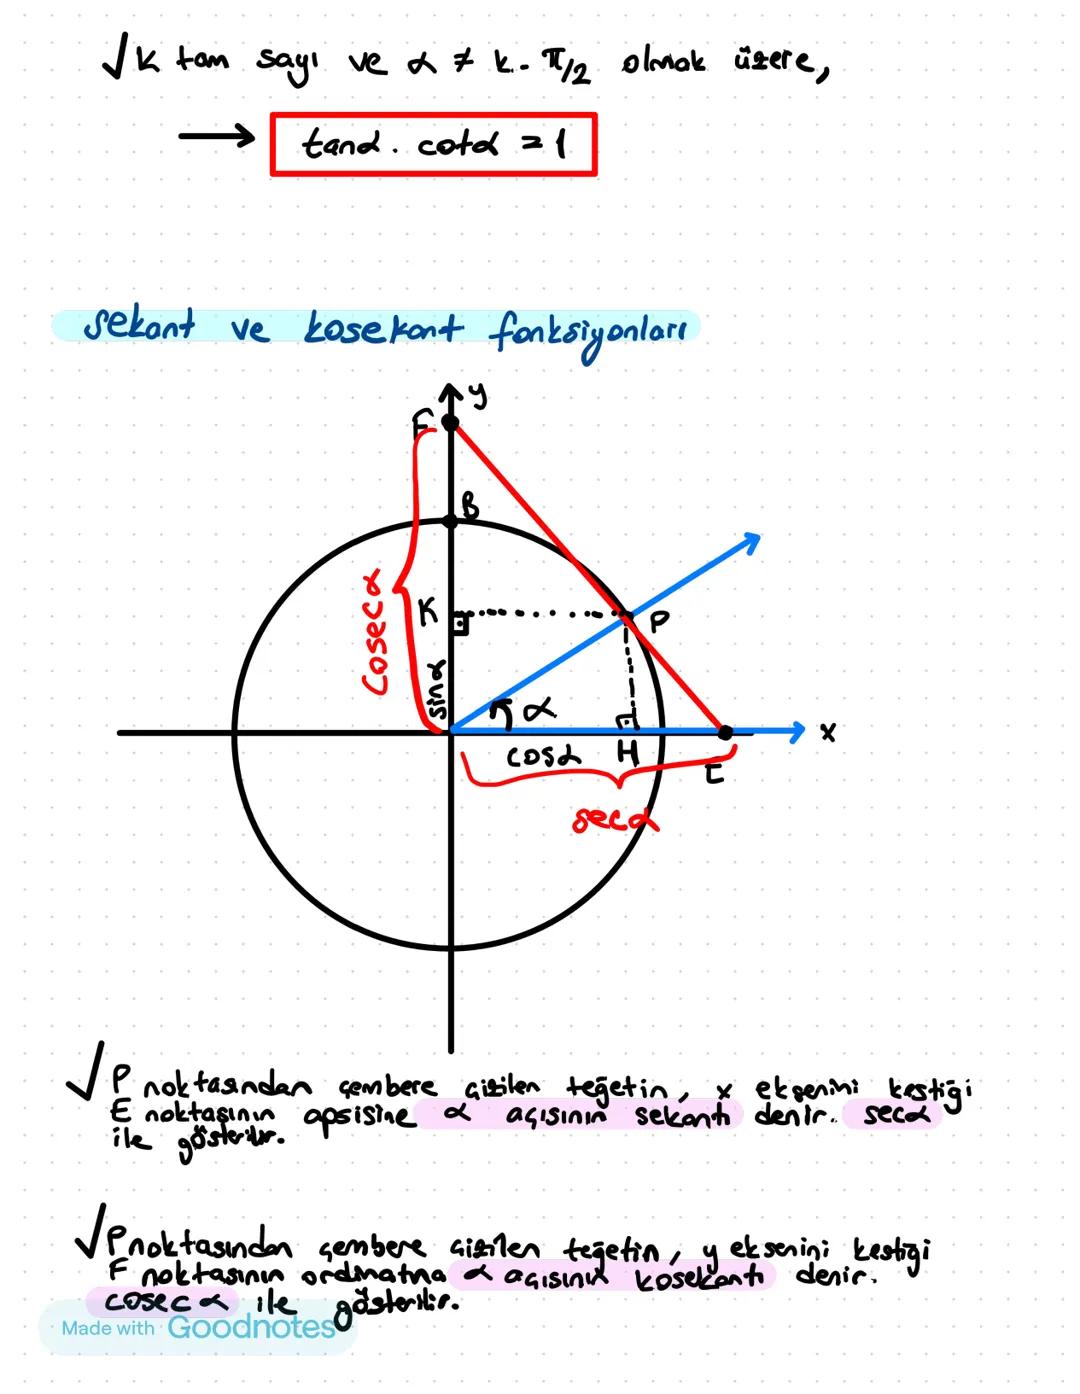 √ K tam sayı ve α ≠ k. π/2 olmak üzere,
→ tanα . cotα = 1
sekant ve kosekant fonksiyonları
y
F
B
Cosecα
K
P
sinα
α
x
cosα H
E
secα
√ P noktasından çembere çizilen teğetin, x eksenini kestiği
E noktasının apsisine α açısının sekantı denir. secα
ile gösterilir.
√ P noktasından çembere çizilen teğetin, y eksenini kestiği
F noktasının ordinatına α açısının kosekantı denir.
cosec α ile gösterilir.
Made with Goodnotes